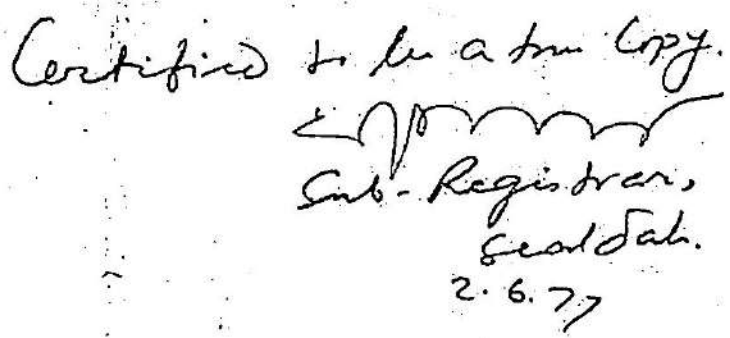 Certified to be a true Copy.
Sub-Registrar,
Sealdah.
2.6.77